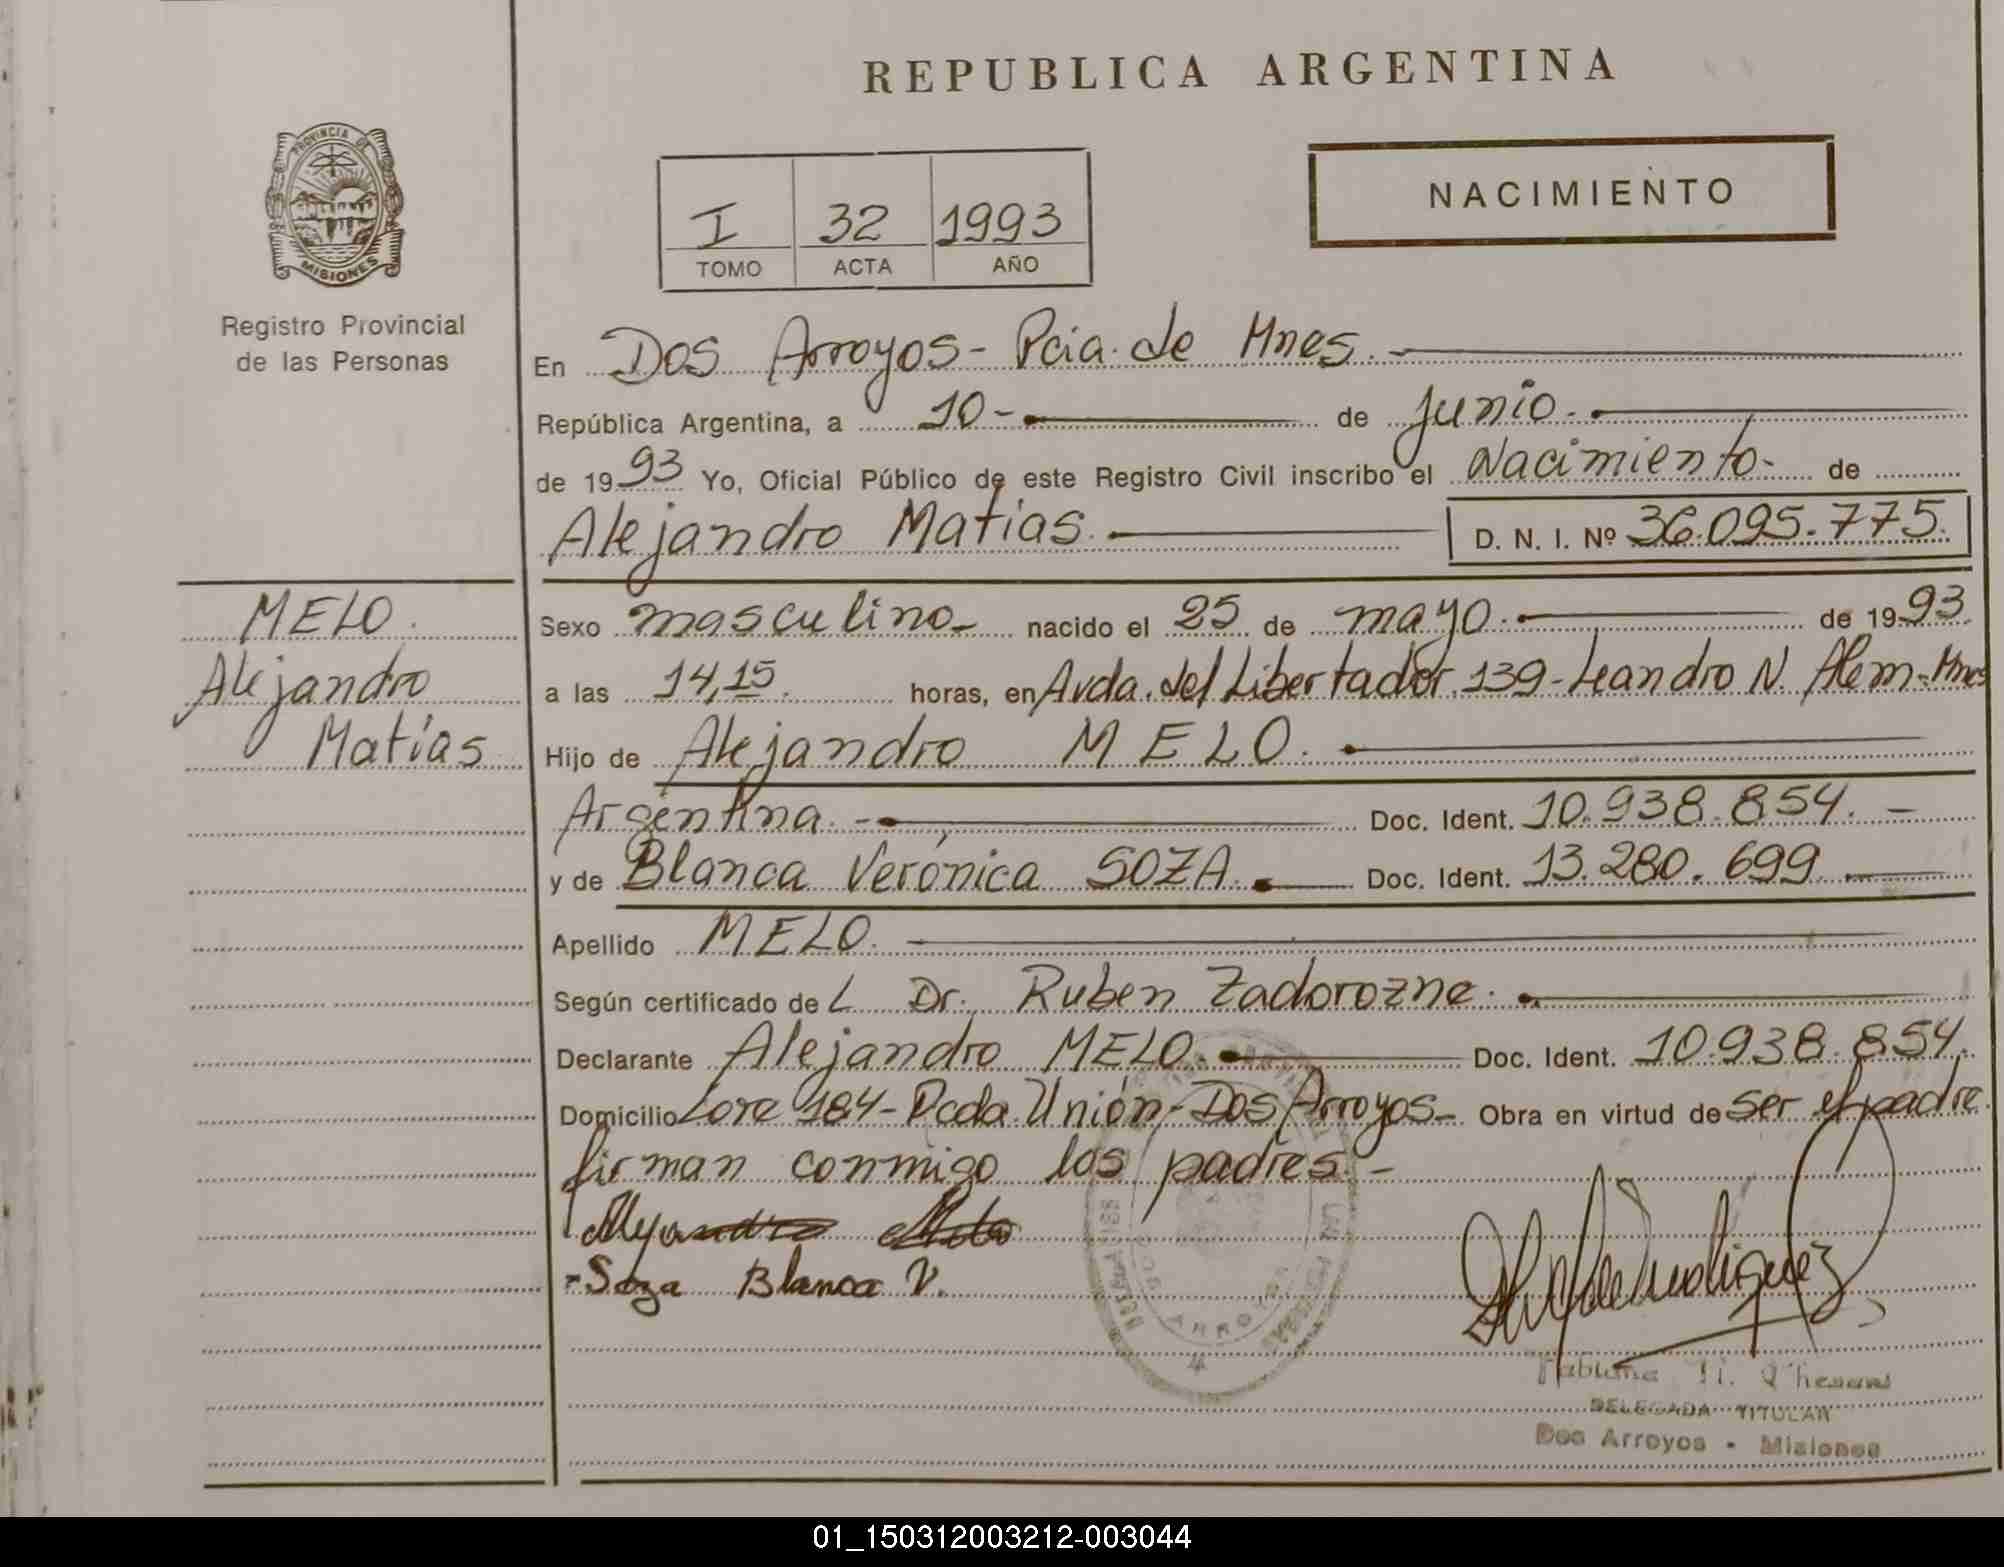 REPUBLICA ARGENTINA
PROVINCIA DE
MISIONES
Registro Provincial
de las Personas
I 32 1993
TOMO ACTA AÑO
NACIMIENTO
En Dos Arroyos - Pcia. de Mnes.
República Argentina, a 10 - de Junio.
de 1993 Yo, Oficial Público de este Registro Civil inscribo el Nacimiento - de
Alejandro Matías. D. N. I. Nº 36.095.775.
MELO.
Alejandro
Matías
Sexo masculino - nacido el 25 de mayo. de 1993.
a las 14,15. horas, en Avda. del Libertador 139 - Leandro N. Alem - Mnes
Hijo de Alejandro MELO.
Argentina. - Doc. Ident. 10.938.854. -
y de Blanca Verónica SOZA. Doc. Ident. 13.280.699
Apellido MELO.
Según certificado de L Dr. Ruben Zadorozne.
Declarante Alejandro MELO. Doc. Ident. 10.938.854.
Domicilio Lote 184 - Pcda. Unión - Dos Arroyos - Obra en virtud de ser el padre.
firman conmigo los padres. -
Alejandro Melo
- Soza Blanca V.
DOS ARROYOS
4
DELEGADA TITULAR
Dos Arroyos - Misiones
01_150312003212-003044